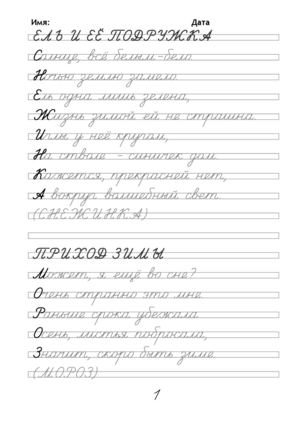 Имя: Дата
ЕЛЬ И ЕЁ ПОДРУЖКА
Солнце, всё белым-бело.
Ночью землю замело.
Ель одна лишь зелена,
Жизнь зимой ей не страшна.
Иглы у неё кругом,
На стволе - синичек дом.
Кажется, прекрасней нет,
А вокруг волшебный свет.
(СНЕЖИНКА)
ПРИХОД ЗИМЫ
Может, я ещё во сне?
Очень странно это мне.
Раньше срока убежала
Осень, листья побросала,
Значит, скоро быть зиме.
(МОРОЗ)
1